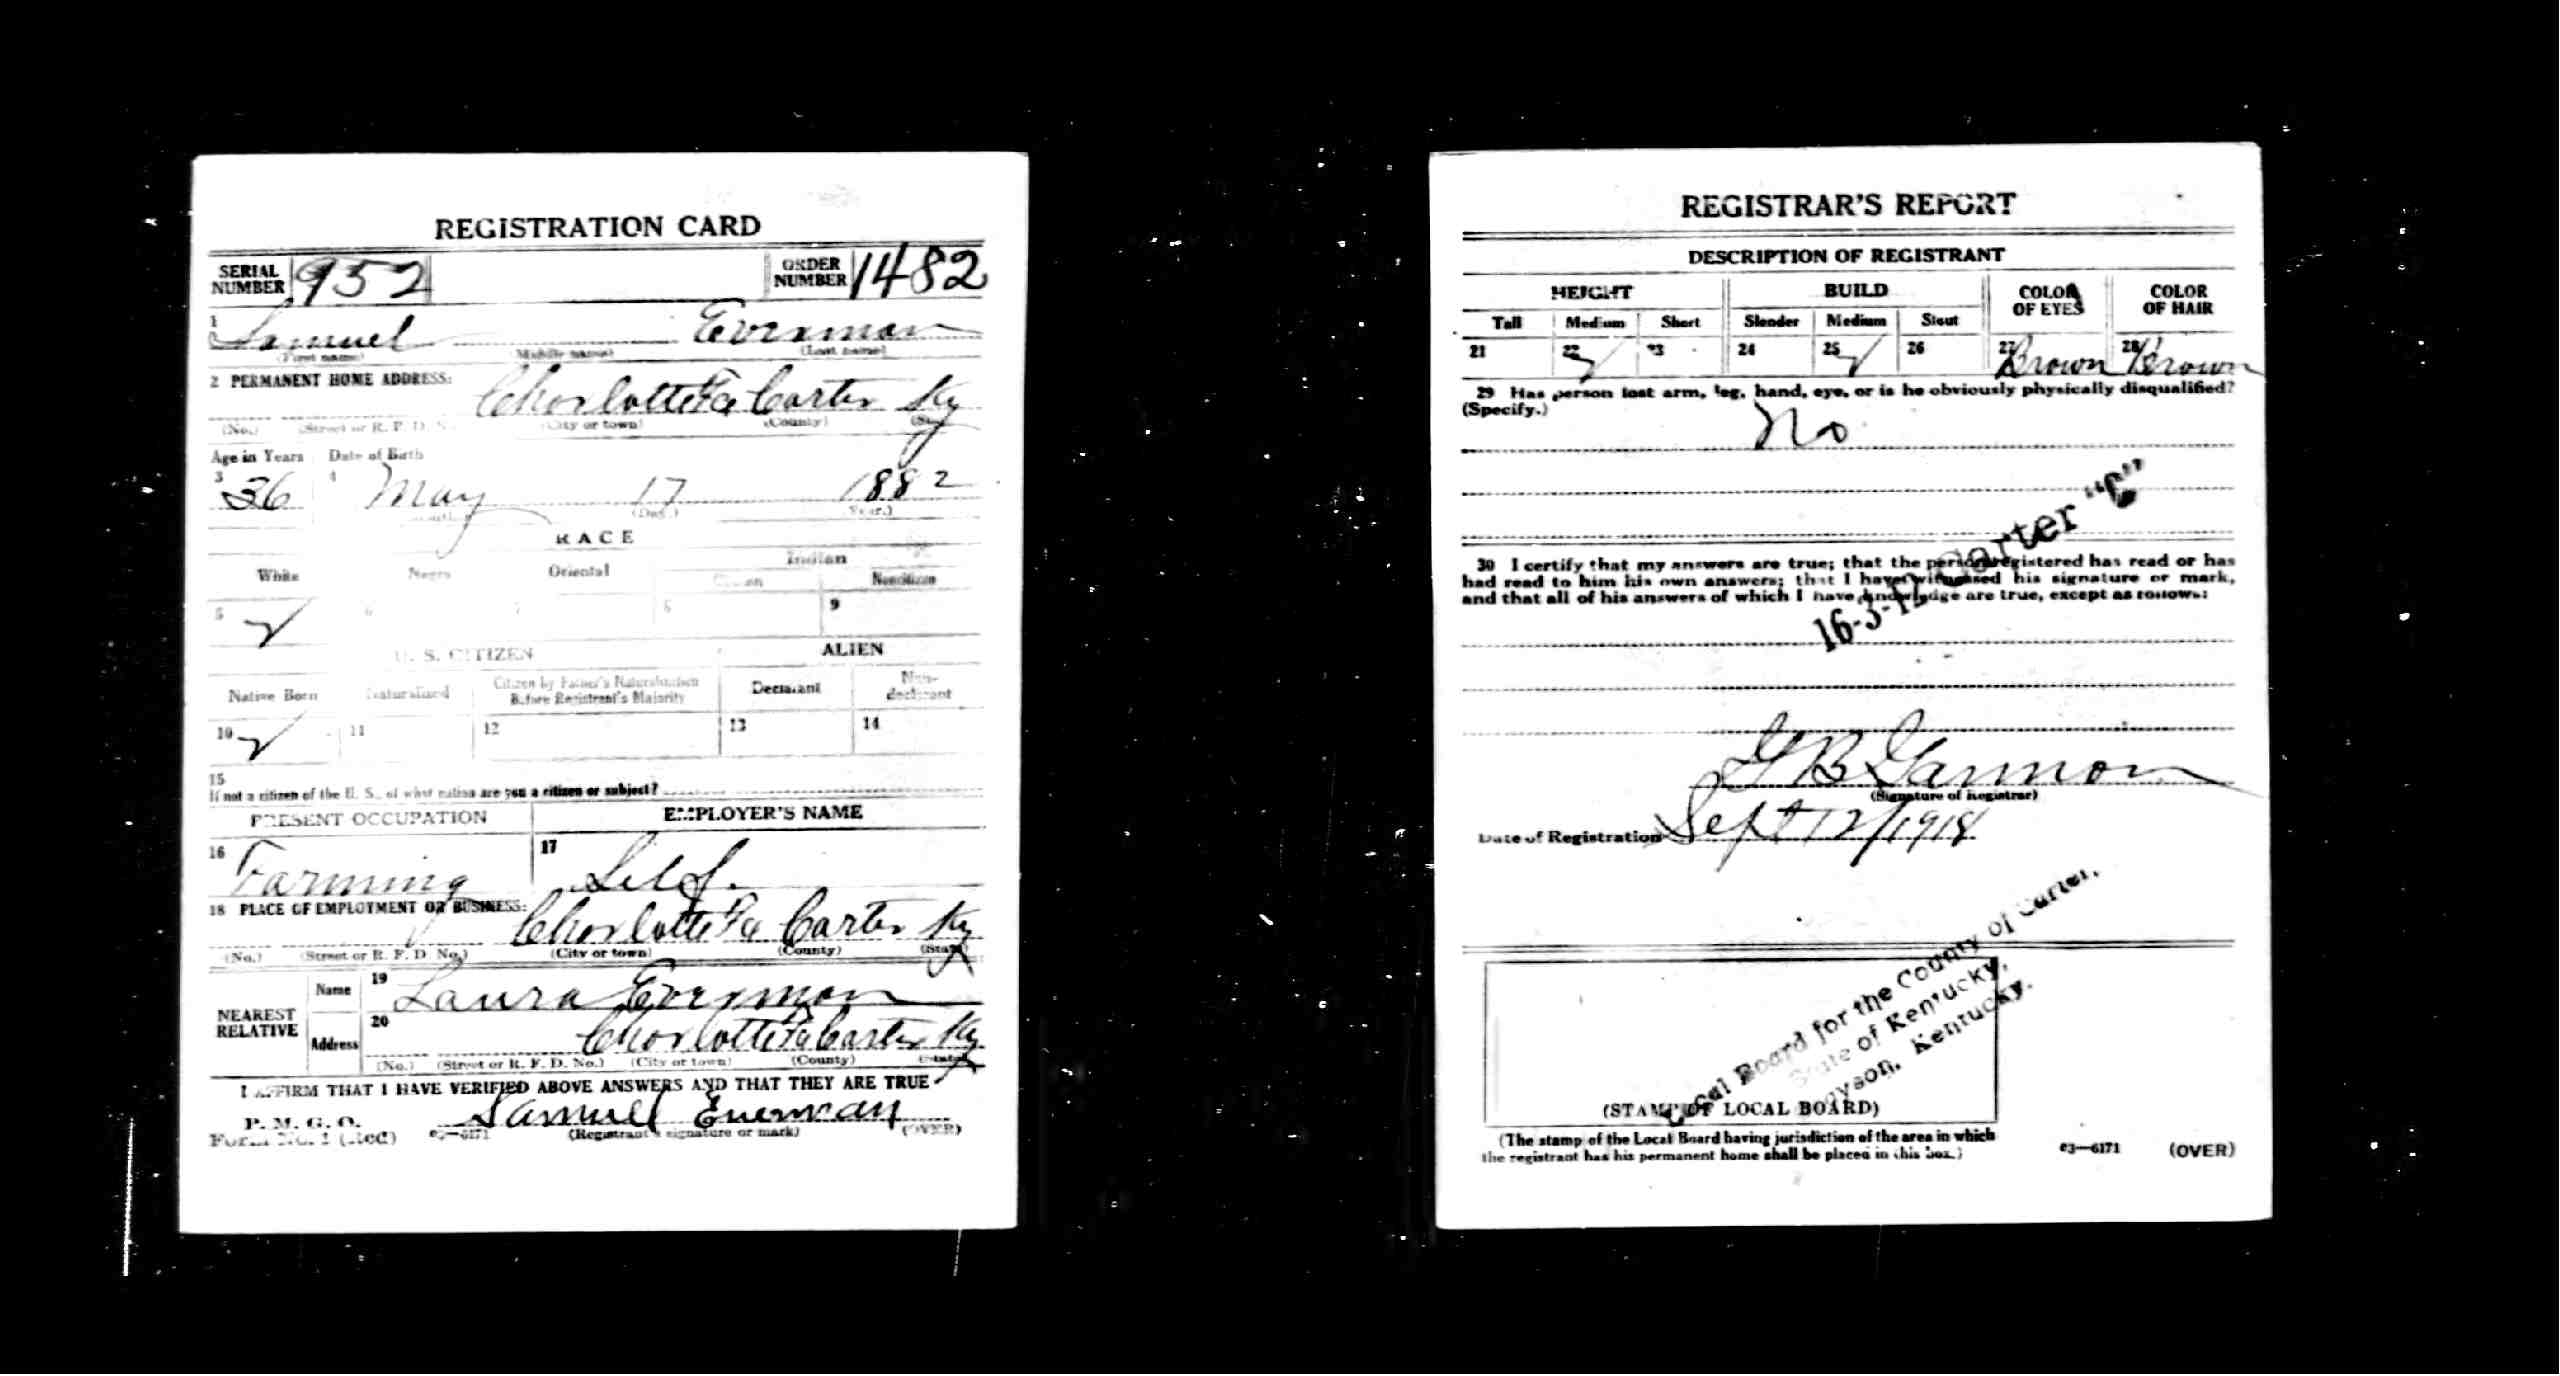 REGISTRATION CARD
SERIAL NUMBER 952 ORDER NUMBER 1482
1 Samuel Everman
(First name) (Middle name) (Last name)
2 PERMANENT HOME ADDRESS:
Charlotte Fa Carter Ky
(No.) (Street or R. F. D. No.) (City or town) (County) (State)
Age in Years Date of Birth
3 36 4 May 17 1882
(Month.) (Day.) (Year.)
RACE
White Negro Oriental Indian
Citizen Noncitizen
5 ✓ 6 7 8 9
U. S. CITIZEN ALIEN
Native Born Naturalized Citizen by Father's Naturalization Before Registrant's Majority Declarant Non-declarant
10 ✓ 11 12 13 14
15
If not a citizen of the U. S., of what nation are you a citizen or subject?
PRESENT OCCUPATION EMPLOYER'S NAME
16 Farming 17 Self.
18 PLACE OF EMPLOYMENT OR BUSINESS:
Charlotte Fa Carter Ky
(No.) (Street or R. F. D. No.) (City or town) (County) (State)
NEAREST RELATIVE
Name 19 Laura Everman
Address 20 Charlotte Fa Carter Ky
(No.) (Street or R. F. D. No.) (City or town) (County) (State)
I AFFIRM THAT I HAVE VERIFIED ABOVE ANSWERS AND THAT THEY ARE TRUE
P. M. G. O.
Form No. 1 (Red) 03—6171 Samuel Everman
(Registrant's signature or mark) (OVER)
REGISTRAR'S REPORT
DESCRIPTION OF REGISTRANT
HEIGHT BUILD COLOR OF EYES COLOR OF HAIR
Tall Medium Short Slender Medium Stout
21 22 ✓ 23 24 25 ✓ 26 27 Brown 28 Brown
29 Has person lost arm, leg, hand, eye, or is he obviously physically disqualified?
(Specify.)
No
16-3-12 Carter "C"
30 I certify that my answers are true; that the person registered has read or has
had read to him his own answers; that I have witnessed his signature or mark,
and that all of his answers of which I have knowledge are true, except as follows:
G B Gannon
(Signature of Registrar)
Date of Registration Sept 12/1918
Local Board for the County of Carter,
State of Kentucky,
Grayson, Kentucky.
(STAMP OF LOCAL BOARD)
(The stamp of the Local Board having jurisdiction of the area in which
the registrant has his permanent home shall be placed in this box.)
03—6171 (OVER)